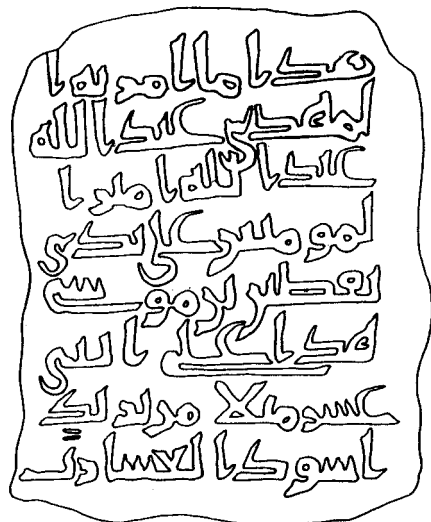 هذا ما امر به ا
لمهدي عبد الله
عبد الله امير ا
لمومنين على يدي
يقطين بن موسى
هذا على اثني
عشر ميلا من